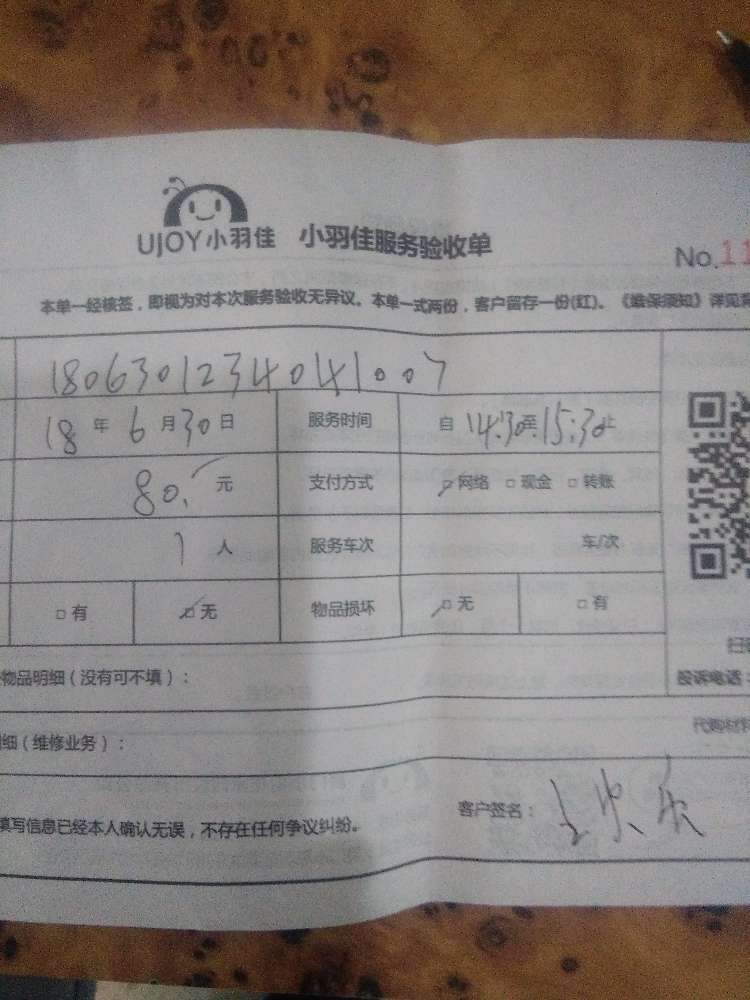 UJOY小羽佳 小羽佳服务验收单
No.11
本单一经核签，即视为对本次服务验收无异议。本单一式两份，客户留存一份(红)。《维保须知》详见
1806301234041007
18 年 6 月 30 日 服务时间 自 14:30 至 15:30 止
80. 元 支付方式 网络 现金 转账
1 人 服务车次 车/次
有 无 物品损坏 无 有
扫
物品明细（没有可不填）： 投诉电话：
细（维修业务）： 代购材
填写信息已经本人确认无误，不存在任何争议纠纷。 客户签名：